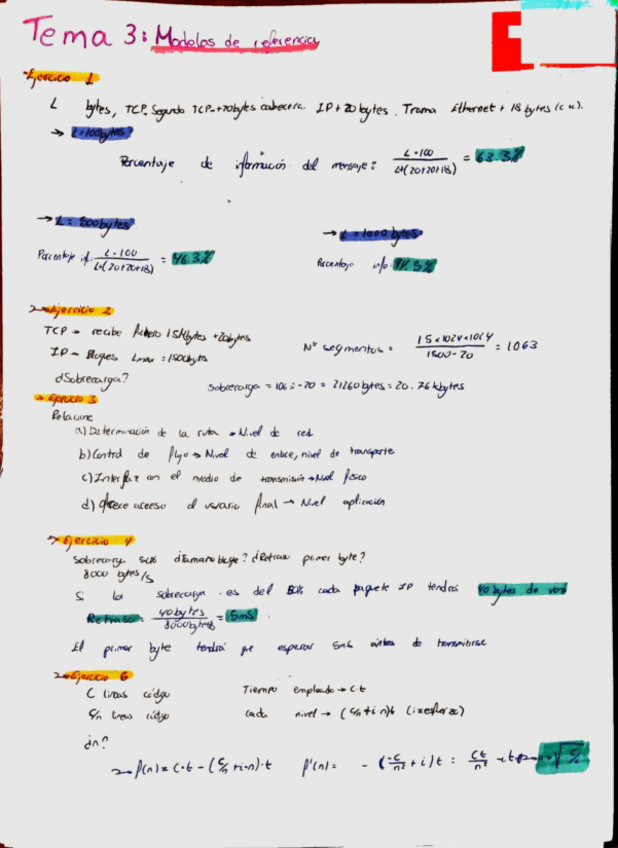 Tema 3: Modelos de referencia
Ejercicio 1
L bytes, TCP. Segundo TCP +20bytes cabecera. IP + 20 bytes. Trama Ethernet + 18 bytes
→ L=100bytes?
Porcentaje de información del mensaje: L·100 / L+(20+20+18) = 63.3%
→ L = 500bytes → L = 1000 bytes
Porcentaje inf: L·100 / L+(20+20+18) = 46.3% Porcentaje info 94.5%
→ Ejercicio 2
TCP → recibe fichero 1.5Mbytes +20bytes
IP → Bloques Lmax = 1500byts
Nº segmentos = 1.5 x 1024 x 1024 / 1500-20 = 1063
¿Sobrecarga? Sobrecarga = 1063·20 = 21260bytes = 20.76kbytes
→ Ejercicio 3
Relacione
a) Determinación de la ruta → Nivel de red
b) Control de flujo → Nivel de enlace, nivel de transporte
c) Interfaz con el medio de transmisión → Nivel físico
d) Ofrece acceso al usuario final → Nivel aplicación
→ Ejercicio 4
Sobrecarga ¿Tamano bloque? ¿Retraso primer byte?
8000 bytes/s
Si la sobrecarga es del cada paquete IP tendrá 40 bytes de
Retraso: 40bytes / 8000bytes/s = 5ms.
El primer byte tendrá que esperar 5ms antes de transmitirse
→ Ejercicio 6
C lineas código Tiempo empleado → C·t
C/n lineas código cada nivel → (C/n + i·n)t (i = esfuerzo)
¿n?
→ f(n) = C·t - (C/n + i·n)·t f'(n) = - (-C/n² + i) t = Ct/n² - it → n = √C/i